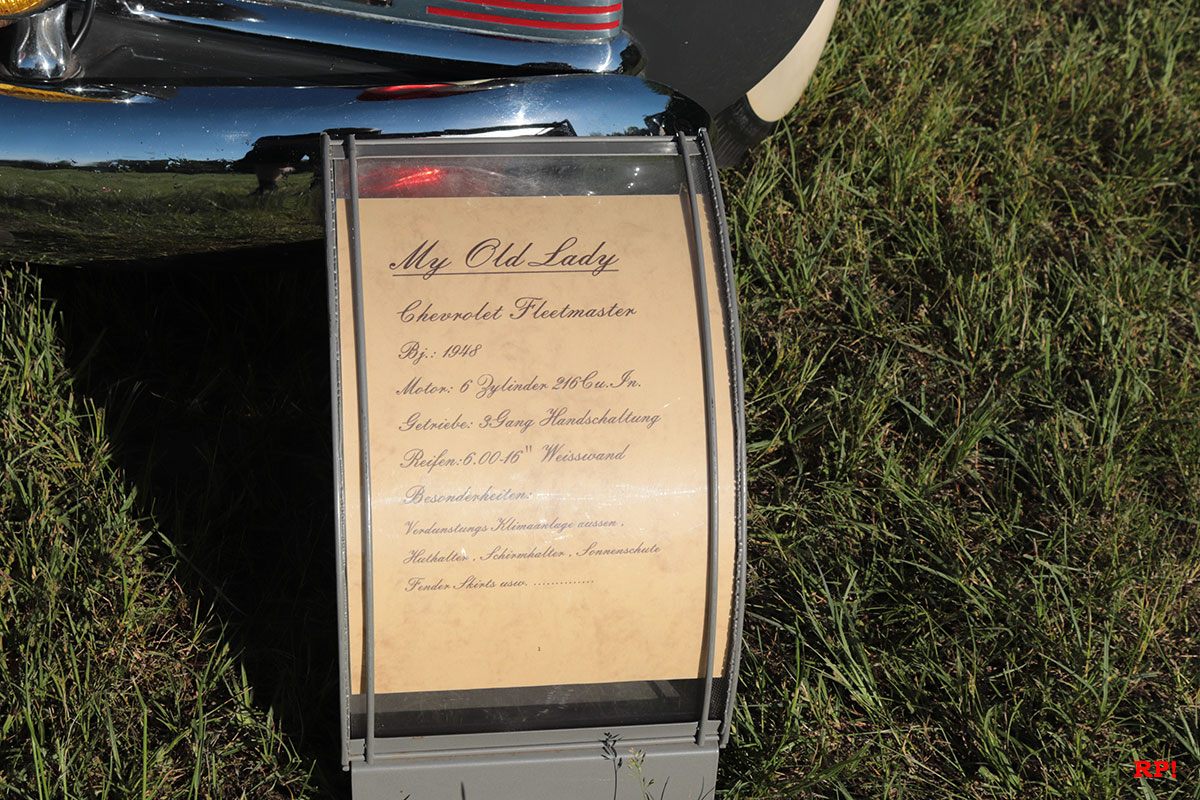 My Old Lady
Chevrolet Fleetmaster
Bj.: 1948
Motor: 6 Zylinder 216Cu.In.
Getriebe: 3Gang Handschaltung
Reifen:6.00-16" Weisswand
Besonderheiten:
Verdunstungs Klimaanlage aussen ,
Huthalter , Schirmhalter , Sonnenschute
Fender Skirts usw. ..............
1
RP!